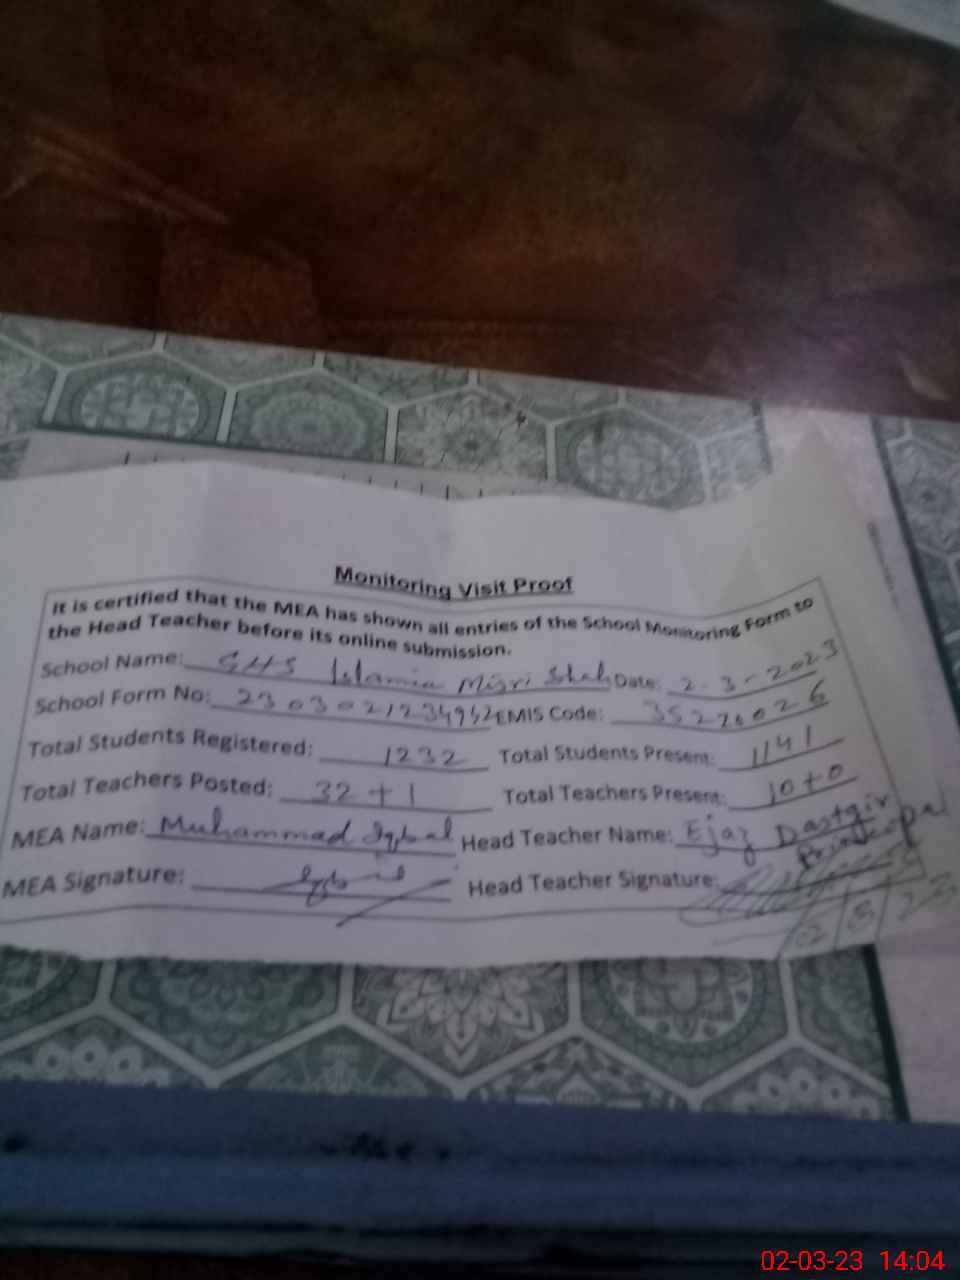 Monitoring Visit Proof
It is certified that the MEA has shown all entries of the School Monitoring Form to
the Head Teacher before its online submission.
School Name: GHS Islamia Misri Shah Date: 2-3-2023
School Form No: EMIS Code: 35220026
Total Students Registered: 1232 Total Students Present: 1141
Total Teachers Posted: 32+1 Total Teachers Present: 10+0
MEA Name: Muhammad Iqbal Head Teacher Name: Ejaz Dastgir
Principal
MEA Signature: Iqbal Head Teacher Signature:
02-03-23 14:04